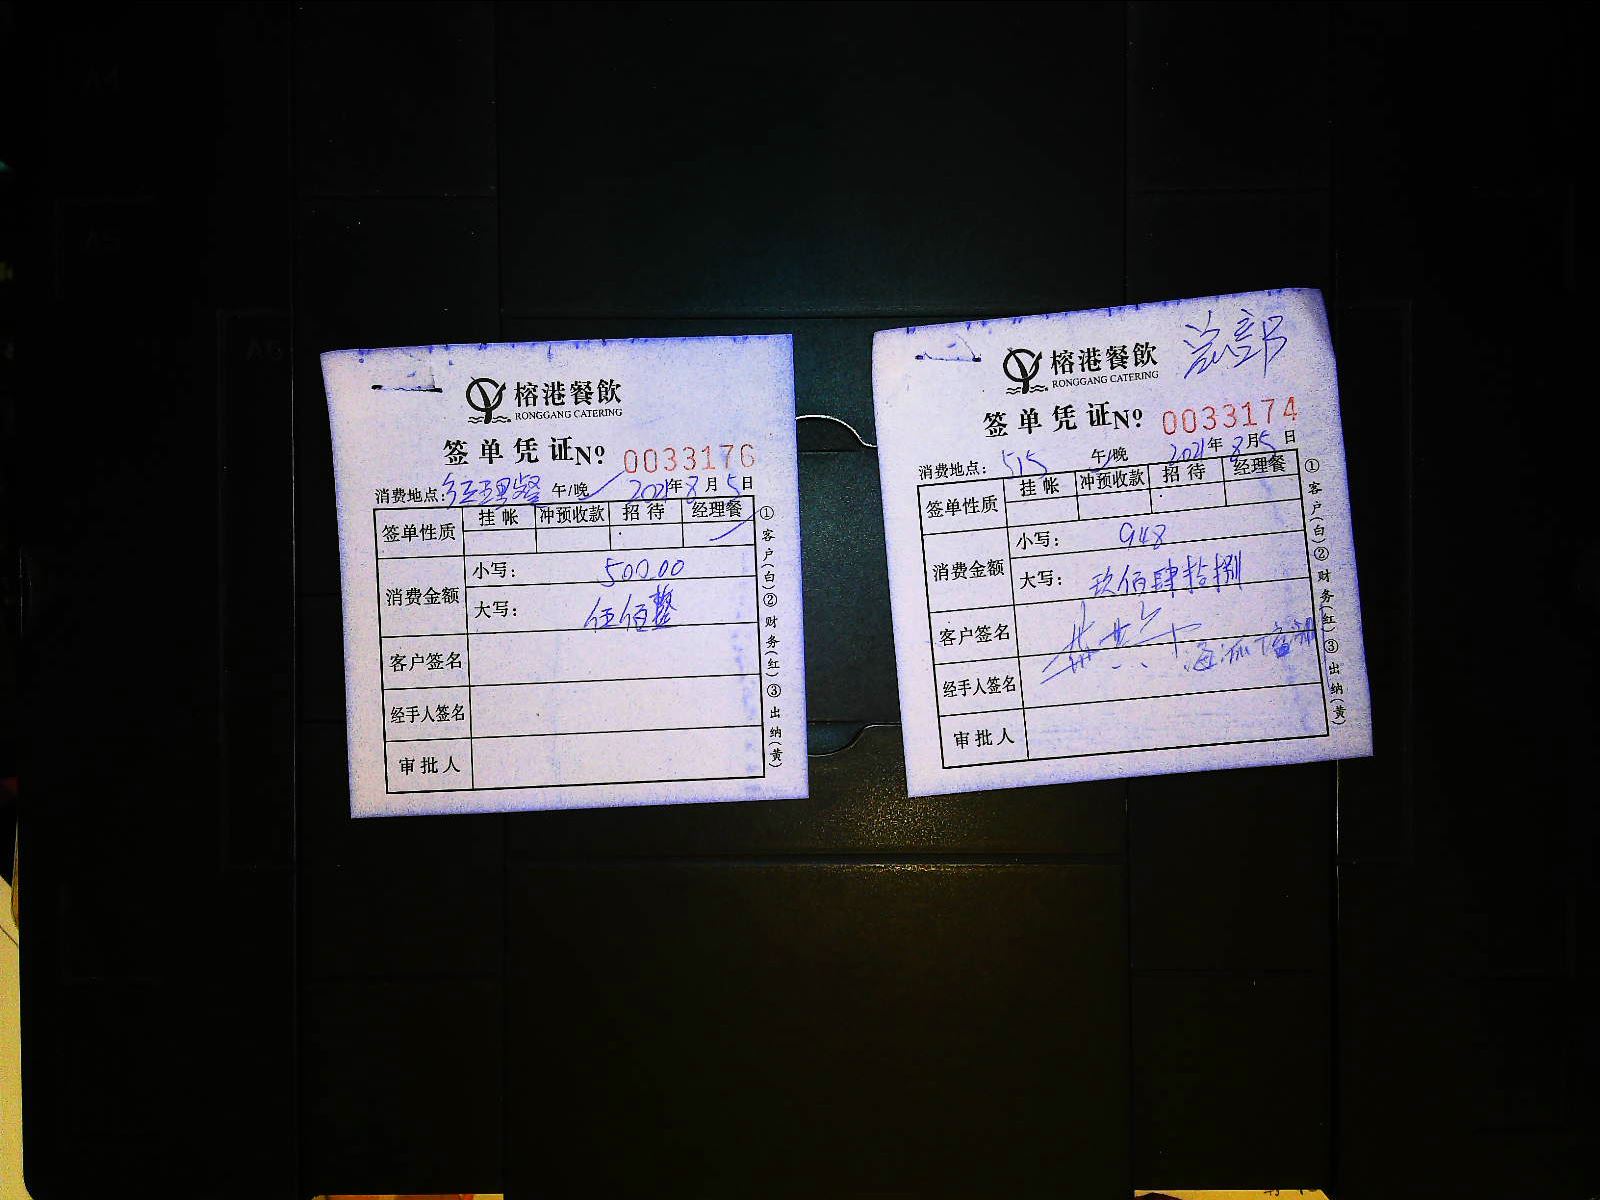 榕港餐飲
RONGGANG CATERING
签单凭证 Nº 0033176
消费地点: 经理餐 午/晚 2021年8月5日
签单性质 挂帐 冲预收款 招待 经理餐
消费金额 小写: 500.00
大写: 伍佰整
客户签名
经手人签名
审批人
①客户(白)②财务(红)③出纳(黄)
总部
榕港餐飲
RONGGANG CATERING
签单凭证 Nº 0033174
消费地点: 515 午/晚 2021年8月5日
签单性质 挂帐 冲预收款 招待 经理餐
消费金额 小写: 948
大写: 玖佰肆拾捌
客户签名
经手人签名
审批人
①客户(白)②财务(红)③出纳(黄)